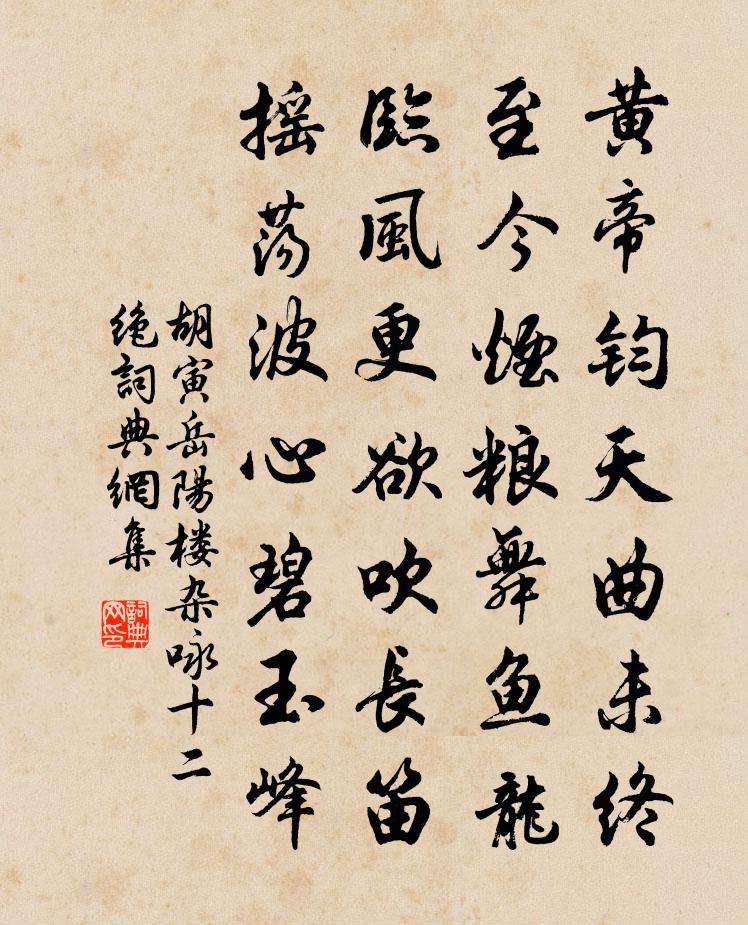 黄帝鈞天曲未终
至今煙粮舞鱼龍
臨風更欲吹長笛
摇荡波心碧玉峰
胡寅岳陽楼杂咏十二
绝詞典網集
詞典
网印